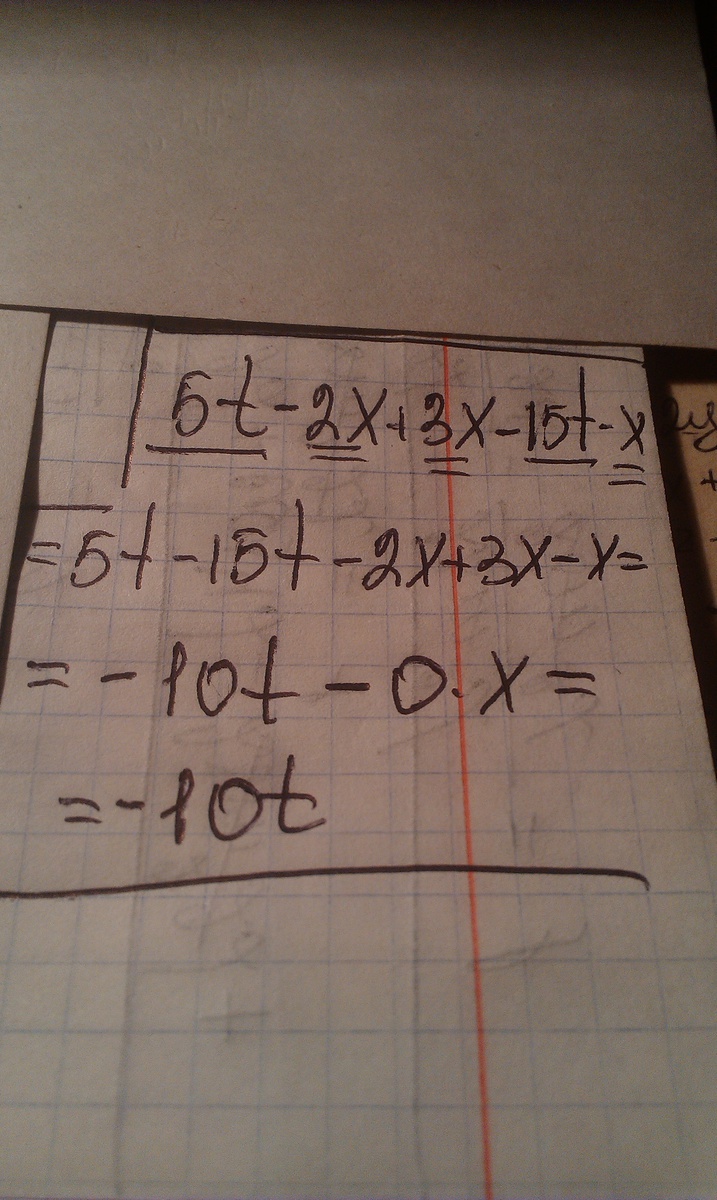 5t-2x+3x-15t-x
=5t-15t-2x+3x-x=
=-10t-0·x=
=-10t